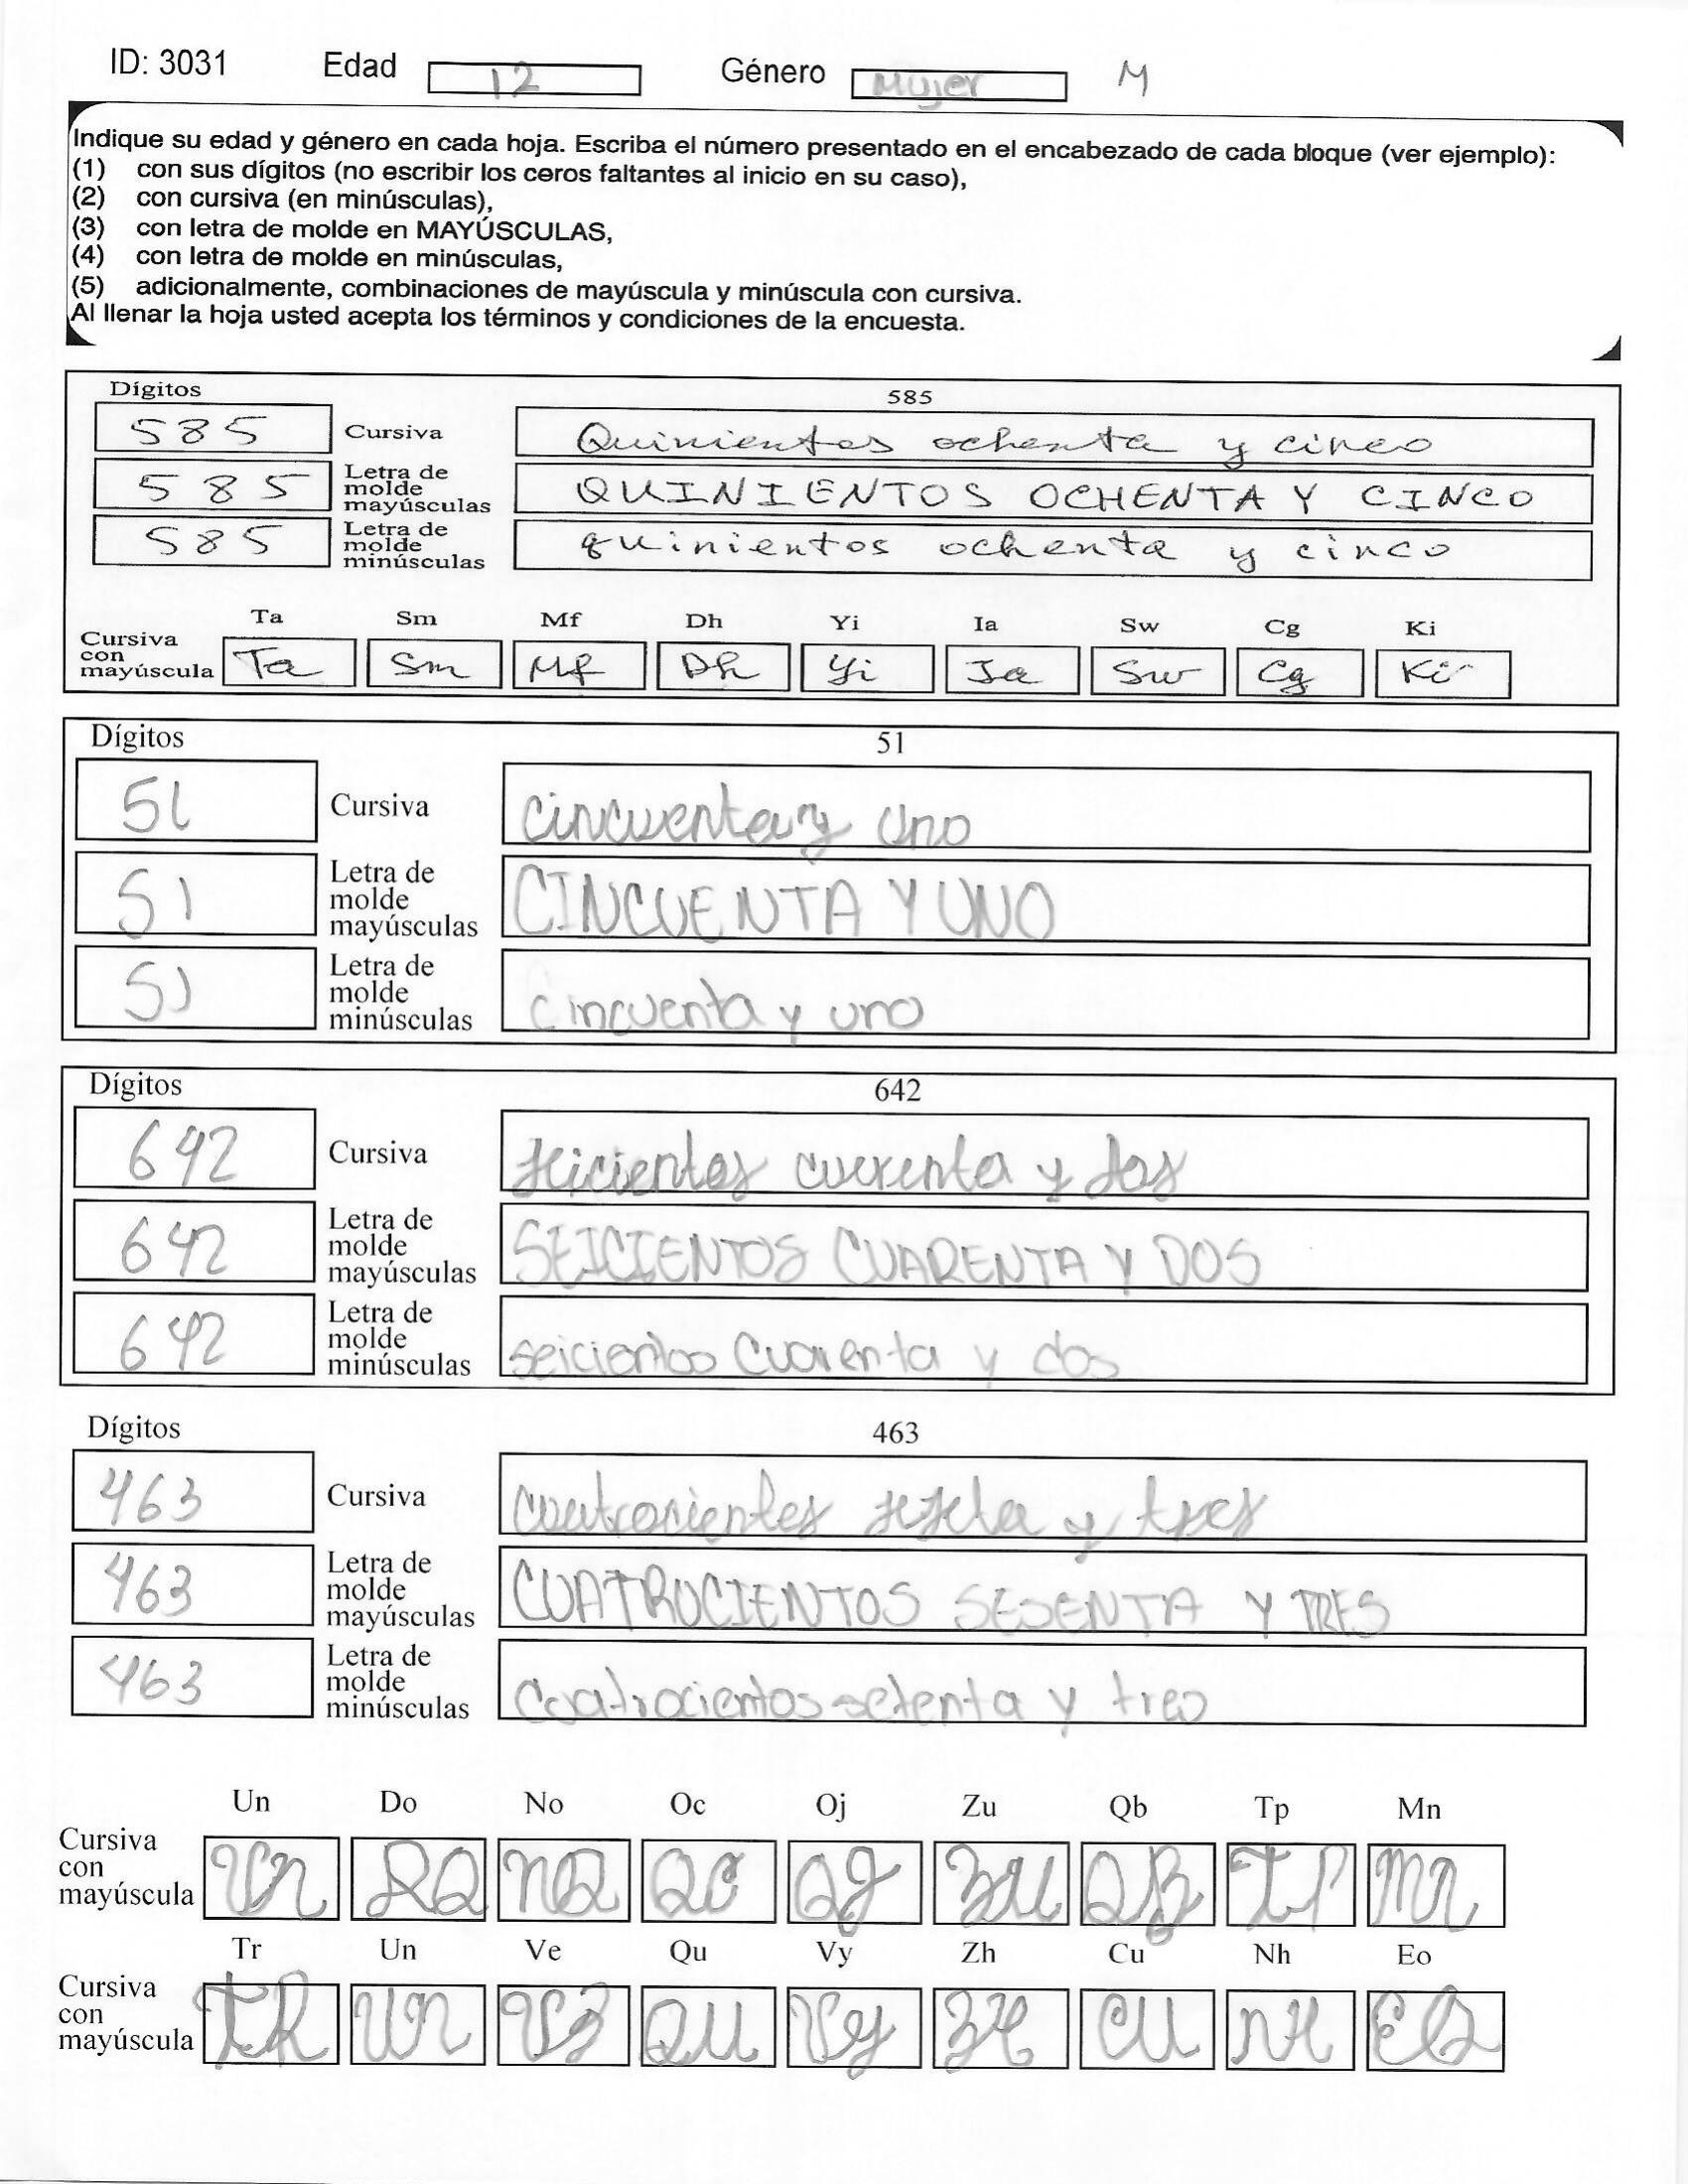 ID: 3031 Edad 12 Género Mujer M
Indique su edad y género en cada hoja. Escriba el número presentado en el encabezado de cada bloque (ver ejemplo):
(1) con sus dígitos (no escribir los ceros faltantes al inicio en su caso),
(2) con cursiva (en minúsculas),
(3) con letra de molde en MAYÚSCULAS,
(4) con letra de molde en minúsculas,
(5) adicionalmente, combinaciones de mayúscula y minúscula con cursiva.
Al llenar la hoja usted acepta los términos y condiciones de la encuesta.
Dígitos 585
585 Cursiva Quinientos ochenta y cinco
585 Letra de molde mayúsculas QUINIENTOS OCHENTA Y CINCO
585 Letra de molde minúsculas quinientos ochenta y cinco
Ta Sm Mf Dh Yi Ia Sw Cg Ki
Cursiva con mayúscula Ta Sm Mf Dh Yi Ia Sw Cg Ki
Dígitos 51
51 Cursiva cincuenta y uno
51 Letra de molde mayúsculas CINCUENTA Y UNO
51 Letra de molde minúsculas cincuenta y uno
Dígitos 642
642 Cursiva seicientos cuarenta y dos
642 Letra de molde mayúsculas SEICIENTOS CUARENTA Y DOS
642 Letra de molde minúsculas seicientos cuarenta y dos
Dígitos 463
463 Cursiva y tres
463 Letra de molde mayúsculas CUATROCIENTOS SESENTA Y TRES
463 Letra de molde minúsculas cuatrocientos setenta y tres
Un Do No Oc Oj Zu Qb Tp Mn
Cursiva con mayúscula Un DO NO OC OJ ZU QB TP Mn
Tr Un Ve Qu Vy Zh Cu Nh Eo
Cursiva con mayúscula TR Un QU Vy ZH CU NH EO